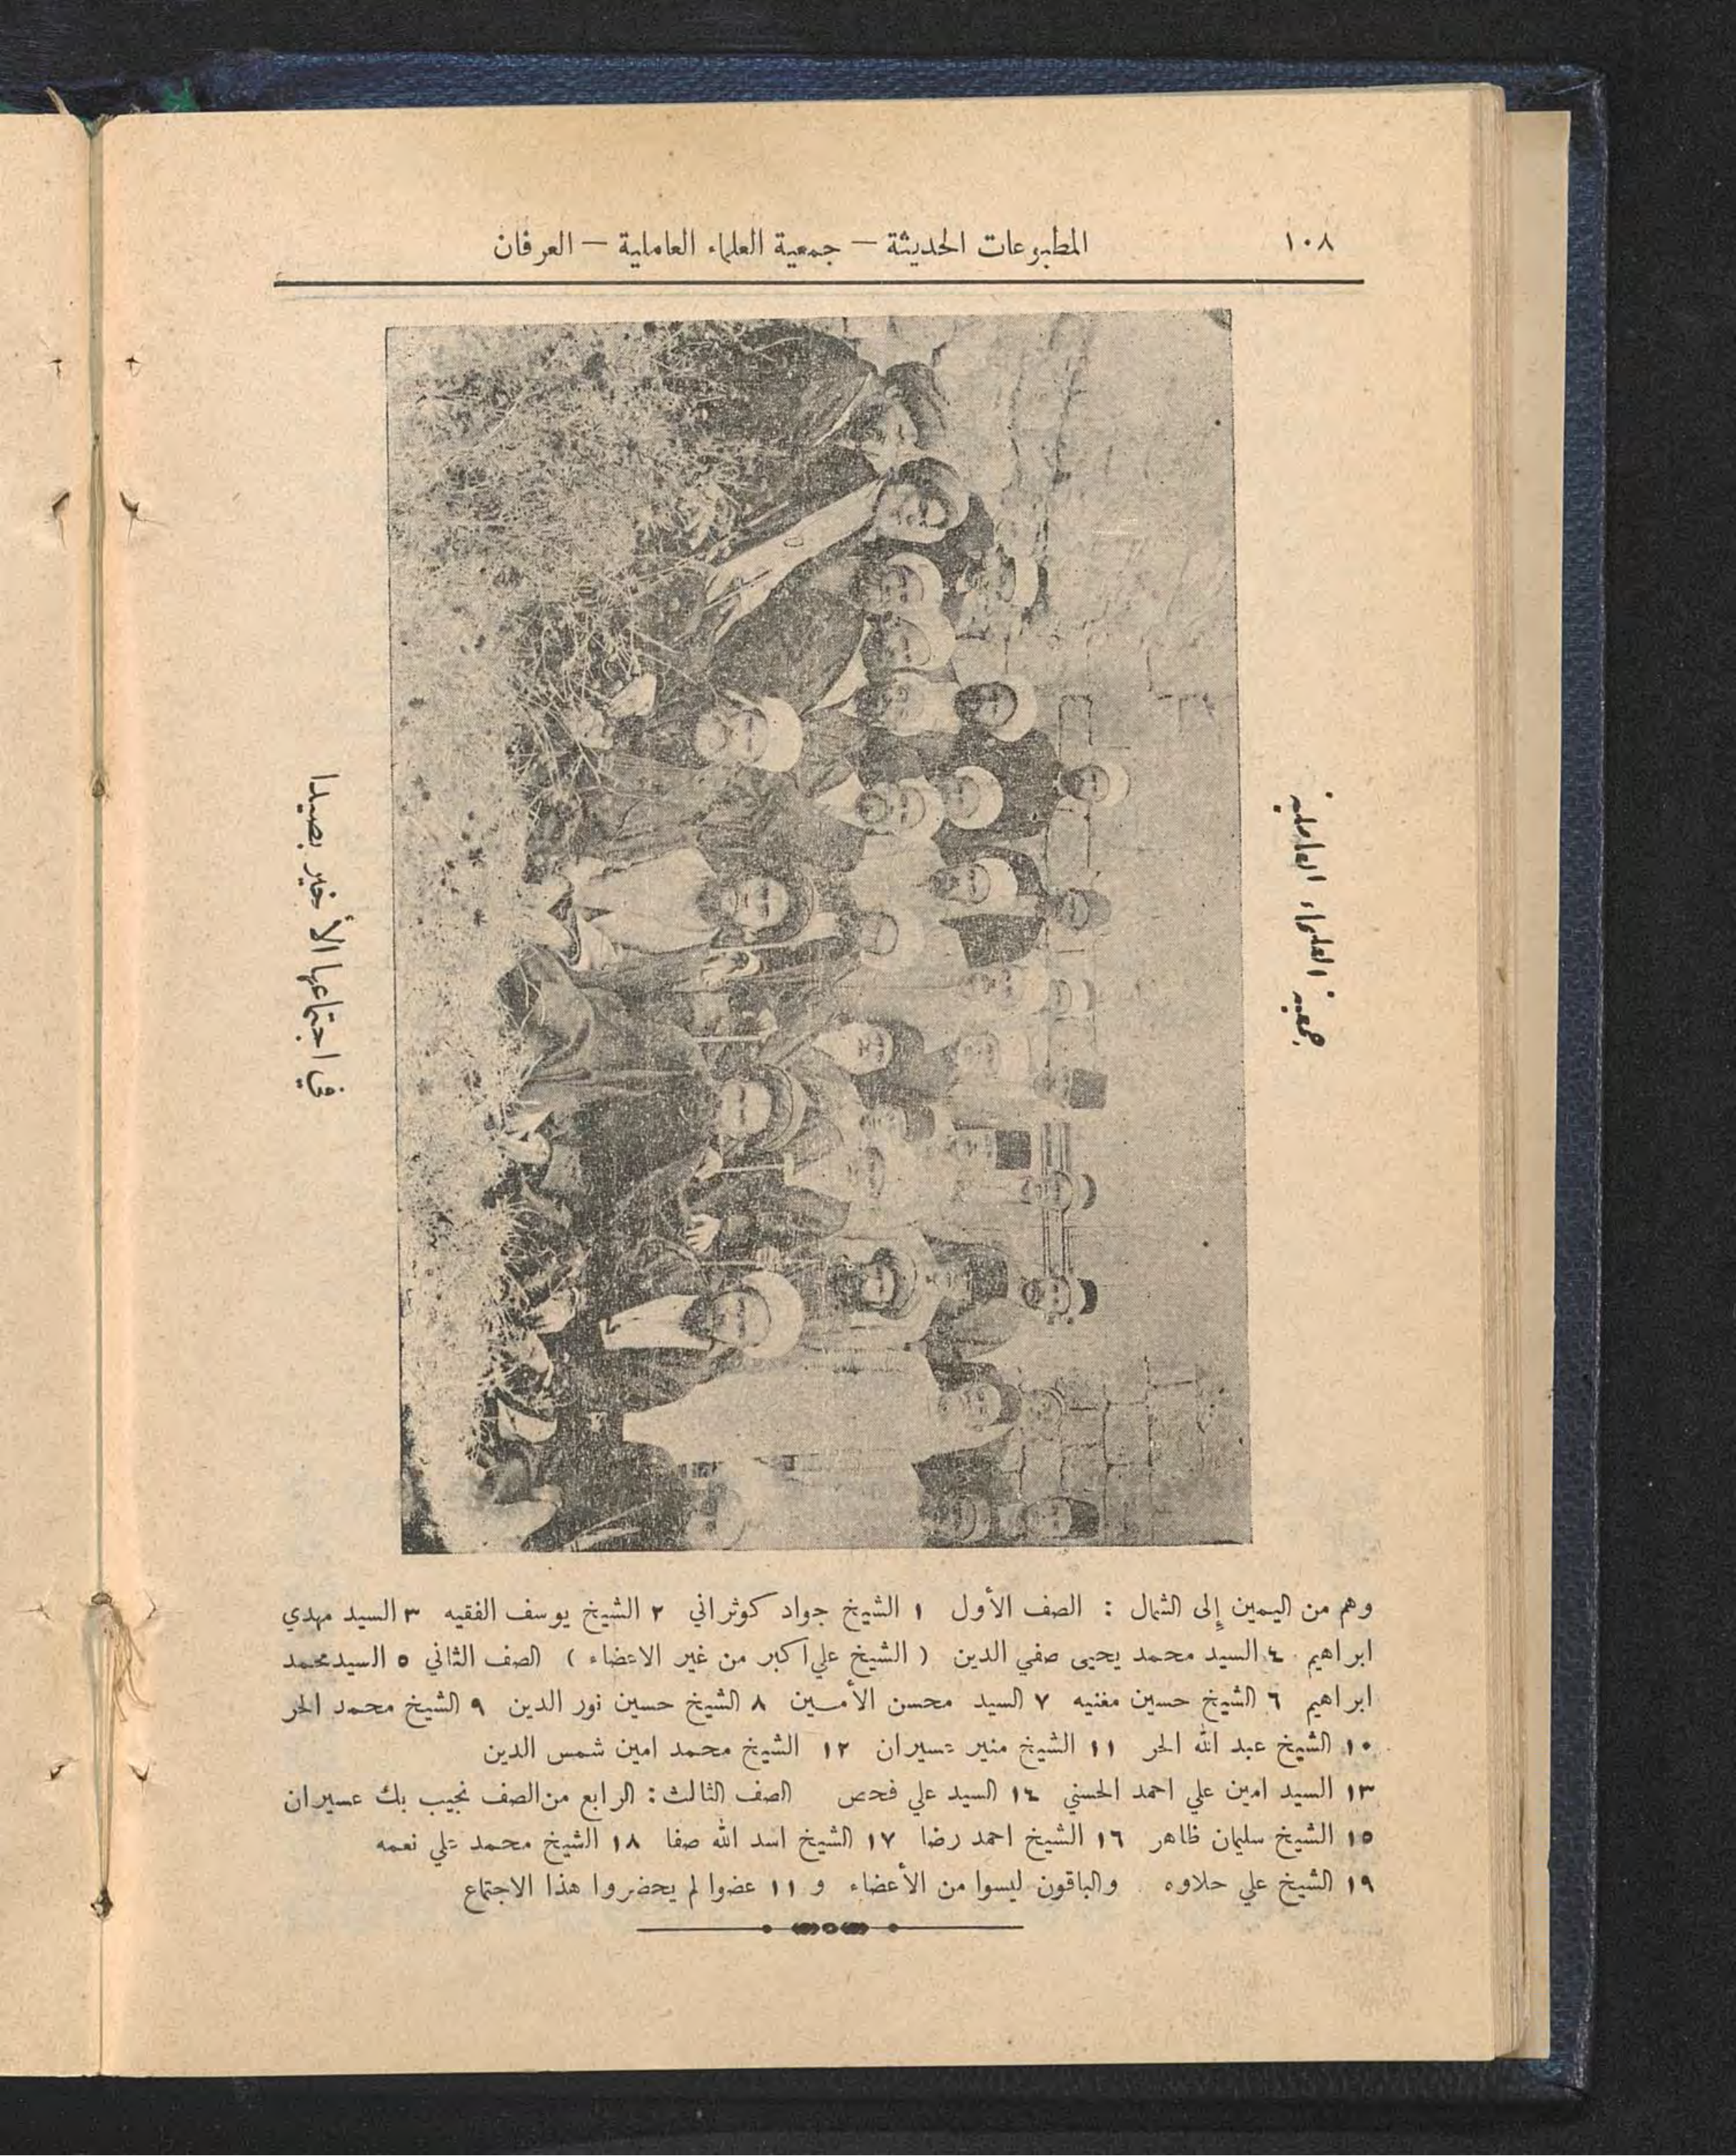 ١٠٨
المطبوعات الحديثة — جمعية العلماء العاملية — العرفان
جمعية العلماء العاملية
في اجتماعها الأخير بصيدا
وهم من اليمين إلى الشمال : الصف الأول ١ الشيخ جواد كوثراني ٢ الشيخ يوسف الفقيه ٣ السيد مهدي
ابراهيم ٤ السيد محمد يحيى صفي الدين ( الشيخ علي اكبر من غير الاعضاء ) الصف الثاني ٥ السيد محمد
ابراهيم ٦ الشيخ حسين مغنيه ٧ السيد محسن الأمسين ٨ الشيخ حسين نور الدين ٩ الشيخ محمد الحر
١٠ الشيخ عبد الله الحر ١١ الشيخ منير عسيران ١٢ الشيخ محمد امين شمس الدين
١٣ السيد امين علي احمد الحسني ١٤ السيد علي فحص الصف الثالث : الرابع من الصف نجيب بك عسيران
١٥ الشيخ سليمان ظاهر ١٦ الشيخ احمد رضا ١٧ الشيخ اسد الله صفا ١٨ الشيخ محمد علي نعمه
١٩ الشيخ علي حلاوه والباقون ليسوا من الأعضاء و ١١ عضوا لم يحضروا هذا الاجتماع